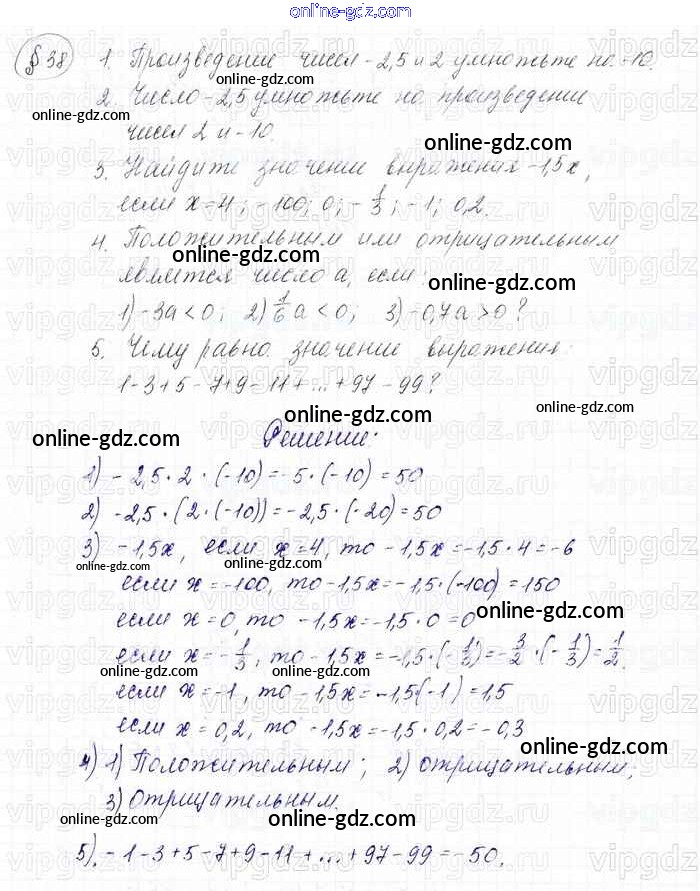 online-gdz.com
§38 1. Произведение чисел -2,5 и 2 умножьте на -10.
online-gdz.com
2. Число -2,5 умножьте на произведение
online-gdz.com
чисел 2 и -10.
online-gdz.com
3. Найдите значение выражения -1,5x,
если x=4; -100; 0; -1/3; -1; 0,2.
online-gdz.com
4. Положительным или отрицательным
является число a, если:
online-gdz.com
1) -3a<0; 2) 1/6 a<0; 3) -0,7a>0?
5. Чему равно значение выражения:
1-3+5-7+9-11+...+97-99?
online-gdz.com
online-gdz.com
online-gdz.com
Решение:
1) -2,5·2·(-10)=-5·(-10)=50
2) -2,5·(2·(-10))=-2,5·(-20)=50
3) -1,5x, если x=4, то -1,5x=-1,5·4=-6
online-gdz.com
если x=-100, то -1,5x=-1,5·(-100)=150
если x=0, то -1,5x=-1,5·0=0
online-gdz.com
если x=-1/3, то -1,5x=-1,5·(-1/3)=-3/2·(-1/3)=1/2.
online-gdz.com
online-gdz.com
если x=-1, то -1,5x=-1,5(-1)=1,5
если x=0,2, то -1,5x=-1,5·0,2=-0,3
online-gdz.com
4) 1) Положительным; 2) отрицательным;
3) Отрицательным.
online-gdz.com
5) -1-3+5-7+9-11+...+97-99=-50.
online-gdz.com